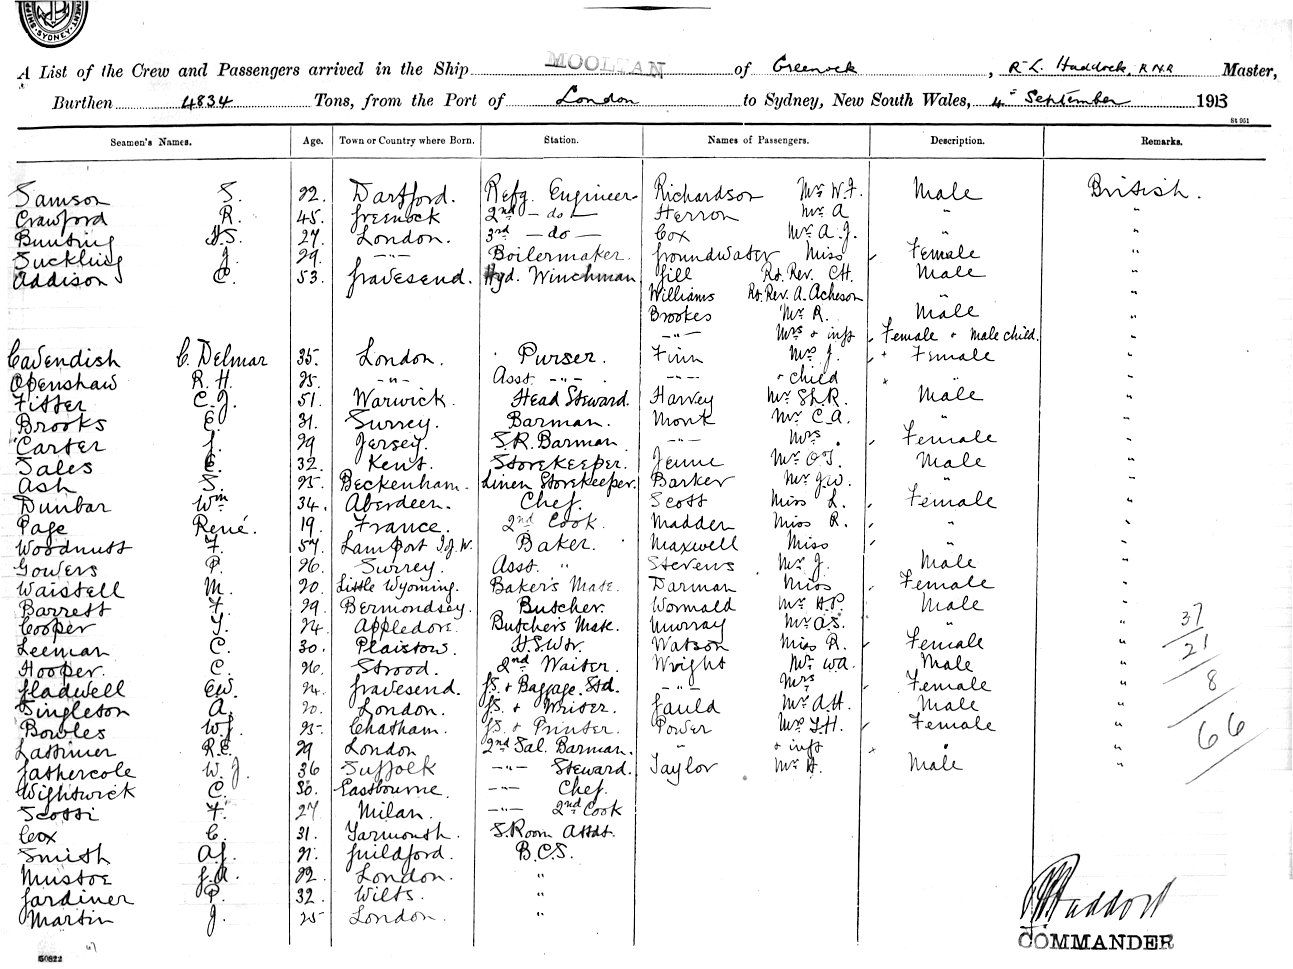 SYDNEY
A List of the Crew and Passengers arrived in the Ship MOOLTAN of Greenock, R. L. Haddock, R.N.R Master,
Burthen 4834 Tons, from the Port of London to Sydney, New South Wales, 4th September 1913
St 951
Seamen's Names. Age. Town or Country where Born. Station. Names of Passengers. Description. Remarks.
Samson S. 22. Dartford. Refg. Engineer Richardson Mr W.F. Male British.
Crawford R. 45. Greenock 2nd -do- Herron Mr A " "
Bunting H.S. 27. London. 3rd -do- Cox Mr A.J. " "
Suckling J. 29. -"- Boilermaker. Groundwater Miss Female "
Addison C. 53. Gravesend. Hyd. Winchman Gill Rt. Rev. CH. Male "
Williams Rt. Rev. A. Acheson " "
Brookes Mr R. Male "
-"- Mrs + inft Female + Male child. "
Cavendish C. Delmar 35. London. Purser. Finn Mrs J. + Female "
Openshaw R. H. 25. -"- Asst. -"- -"- + child " "
Fitter C.J. 51. Warwick. Head Steward. Harvey Mr St.R. Male "
Brooks E. 31. Surrey. Barman. Monk Mr C.A. " "
Carter J. 29 Jersey. S.R. Barman -"- Mrs. Female "
Sales E. 32. Kent. Storekeeper. Mr O.T. Male "
Ash S. 25. Beckenham. Linen Storekeeper. Barker Mr J.W. " "
Dunbar Wm 34. Aberdeen. Chef. Scott Miss L. Female "
Page René. 19. France. 2nd Cook. Madden Miss R. " "
Woodnutt F. 57. Baker. Maxwell Miss " "
Gowers P. 26. Surrey. Asst. " Stevens. Mr J. Male "
Waistell M. 20. Little Wyoming. Baker's Mate. Darman Miss Female "
Barrett F. 29. Bermondsey. Butcher. Wormald Mr H.P. Male "
Cooper T. 24. Appledore. Butcher's Mate. Murray Mr A.S. " " 37
Leeman C. 30. Plaistow. H.S.Wtr. Watson Miss R. Female " 21
Hooper. C. 26. Strood. 2nd Waiter. Wright Mr W.A. Male "
Gladwell E.W. 24. Gravesend. G.S. + Baggage. Std. -"- Mrs Female " 8
Singleton A. 20. London. G.S. + Writer. Gauld Mr A.H. Male "
Bowles W.J. 25. Chatham. G.S. + Printer. Power Mrs T.H. Female " 66
Lattimer R.E. 29 London 2nd Sal. Barman. " + inft " "
Gathercole W. J. 36 Suffolk -"- Steward. Taylor Mr H. Male "
Wightwick C. 30. Eastbourne. -"- Chef.
Scotti F. 27. Milan. -"- 2nd Cook
Cox C. 31. Yarmouth. S. Room Attdt.
Smith A.J. 21. Guildford. B.C.S.
Mustoe J.A. 22. London. "
Gardiner P. 32. Wilts. "
Martin J. 25 London. "
Haddock
COMMANDER
50822